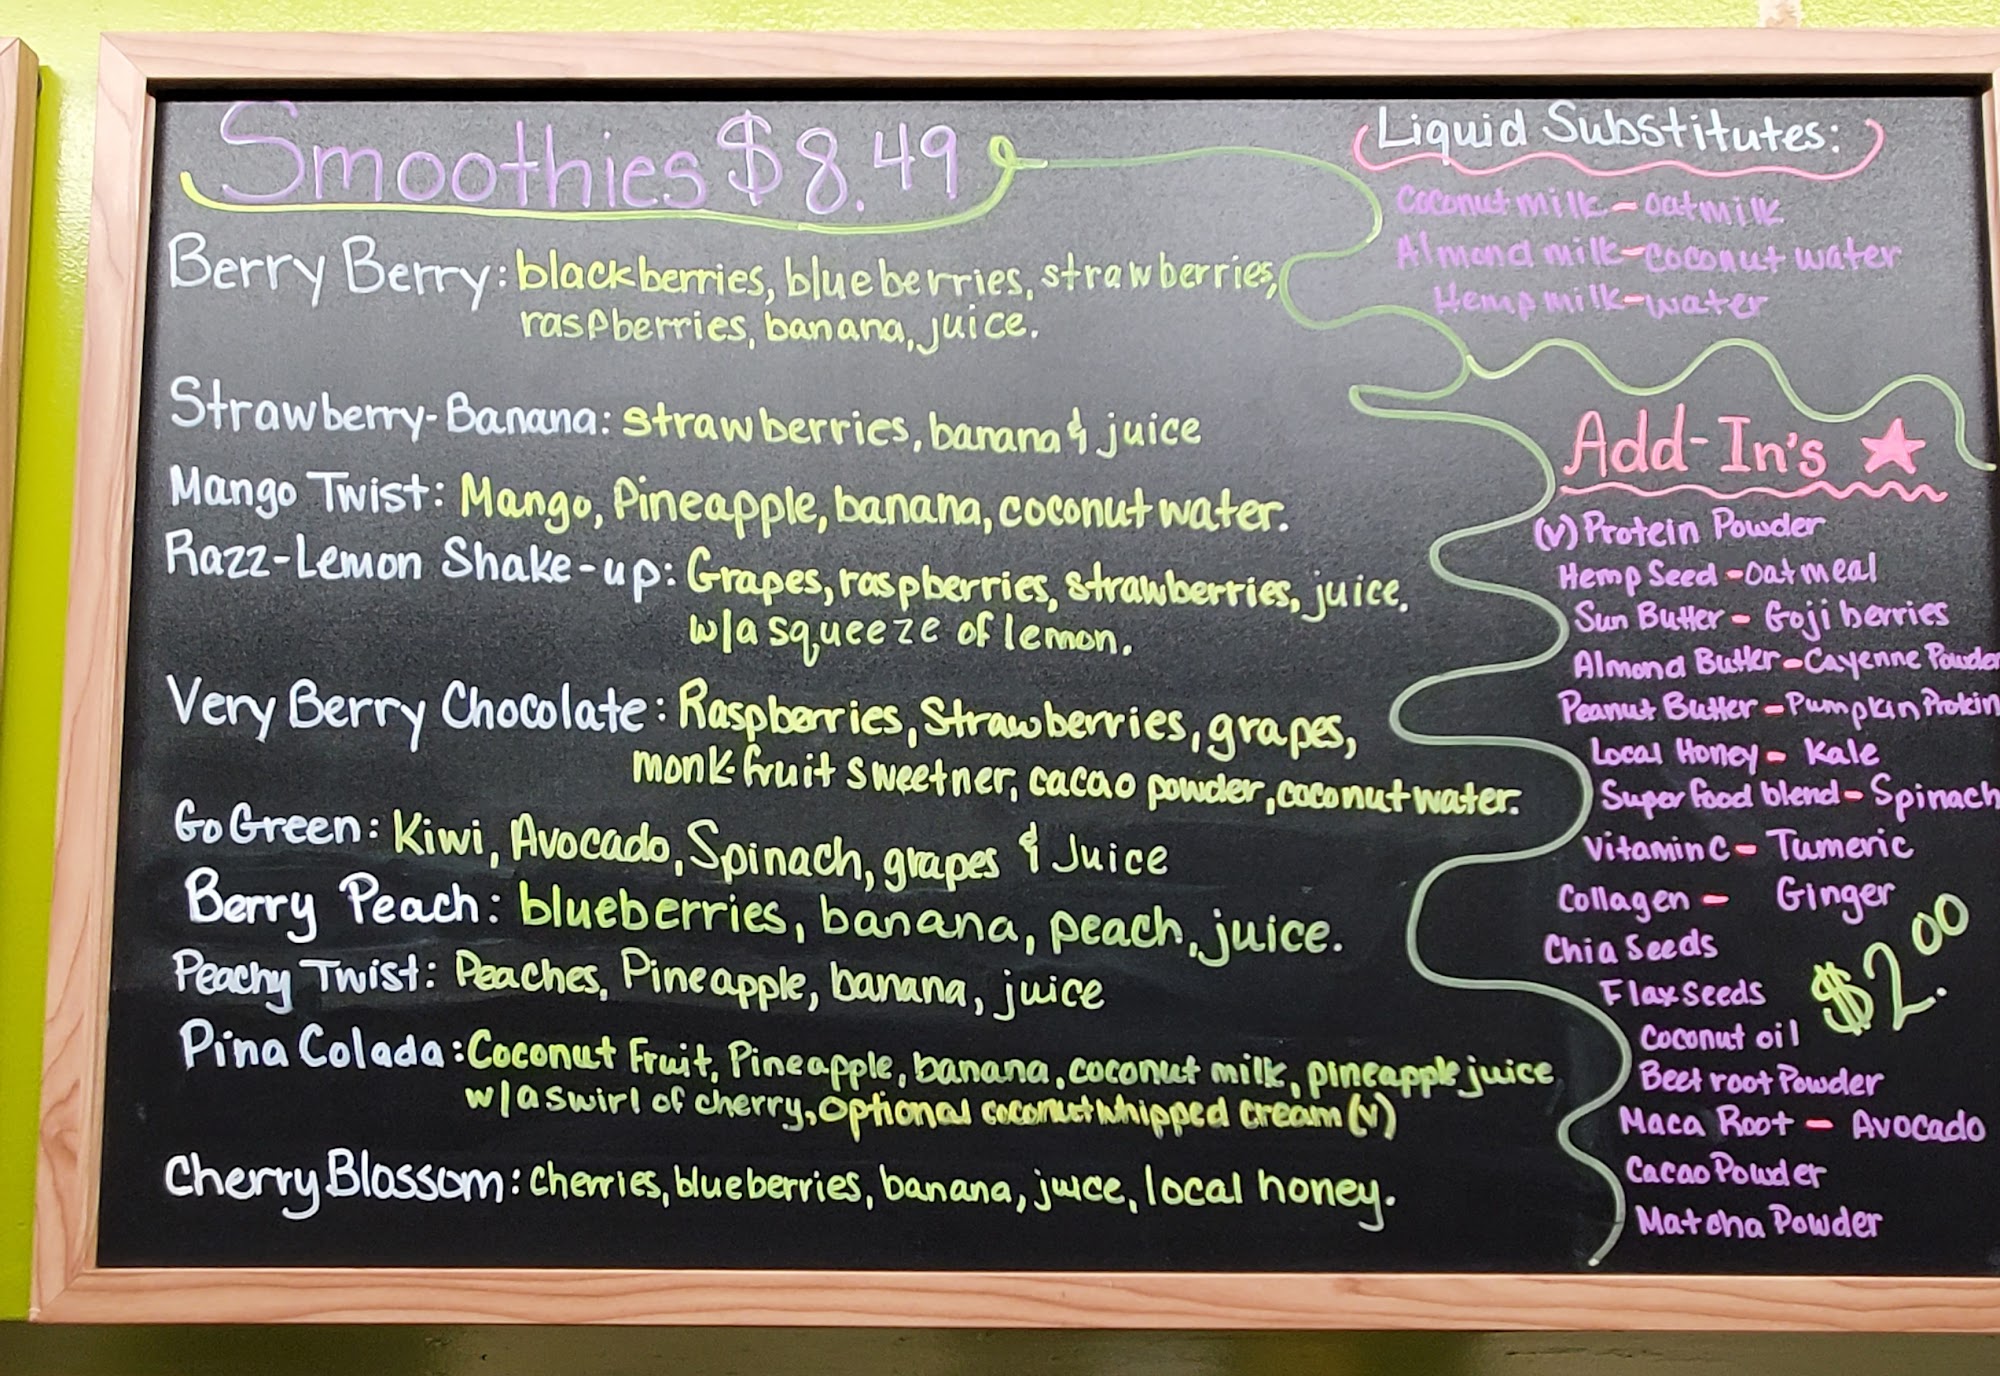 Smoothies $8.49
Berry Berry: blackberries, blueberries, strawberries,
raspberries, banana, juice.
Strawberry-Banana: strawberries, banana & juice
Mango Twist: Mango, Pineapple, banana, coconut water.
Razz-Lemon Shake-up: Grapes, raspberries, strawberries, juice.
w/a squeeze of lemon.
Very Berry Chocolate: Raspberries, Strawberries, grapes,
monk fruit sweetner, cacao powder, coconut water.
Go Green: Kiwi, Avocado, Spinach, grapes & Juice
Berry Peach: blueberries, banana, peach, juice.
Peachy Twist: Peaches, Pineapple, banana, juice
Pina Colada: Coconut Fruit, Pineapple, banana, coconut milk, pineapple juice
w/a swirl of cherry, optional coconut whipped cream (v)
Cherry Blossom: cherries, blueberries, banana, juice, local honey.
Liquid Substitutes:
Coconut milk - oatmilk
Almond milk - coconut water
Hemp milk - water
Add-In's
(v) Protein Powder
Hemp Seed - oatmeal
Sun Butter - Goji berries
Almond Butter - Cayenne Powder
Peanut Butter - Pumpkin Protein
Local Honey - Kale
Super food blend - Spinach
Vitamin C - Tumeric
Collagen - Ginger
Chia Seeds
Flax Seeds
$2.00
Coconut oil
Beet root Powder
Maca Root - Avocado
Cacao Powder
Matcha Powder